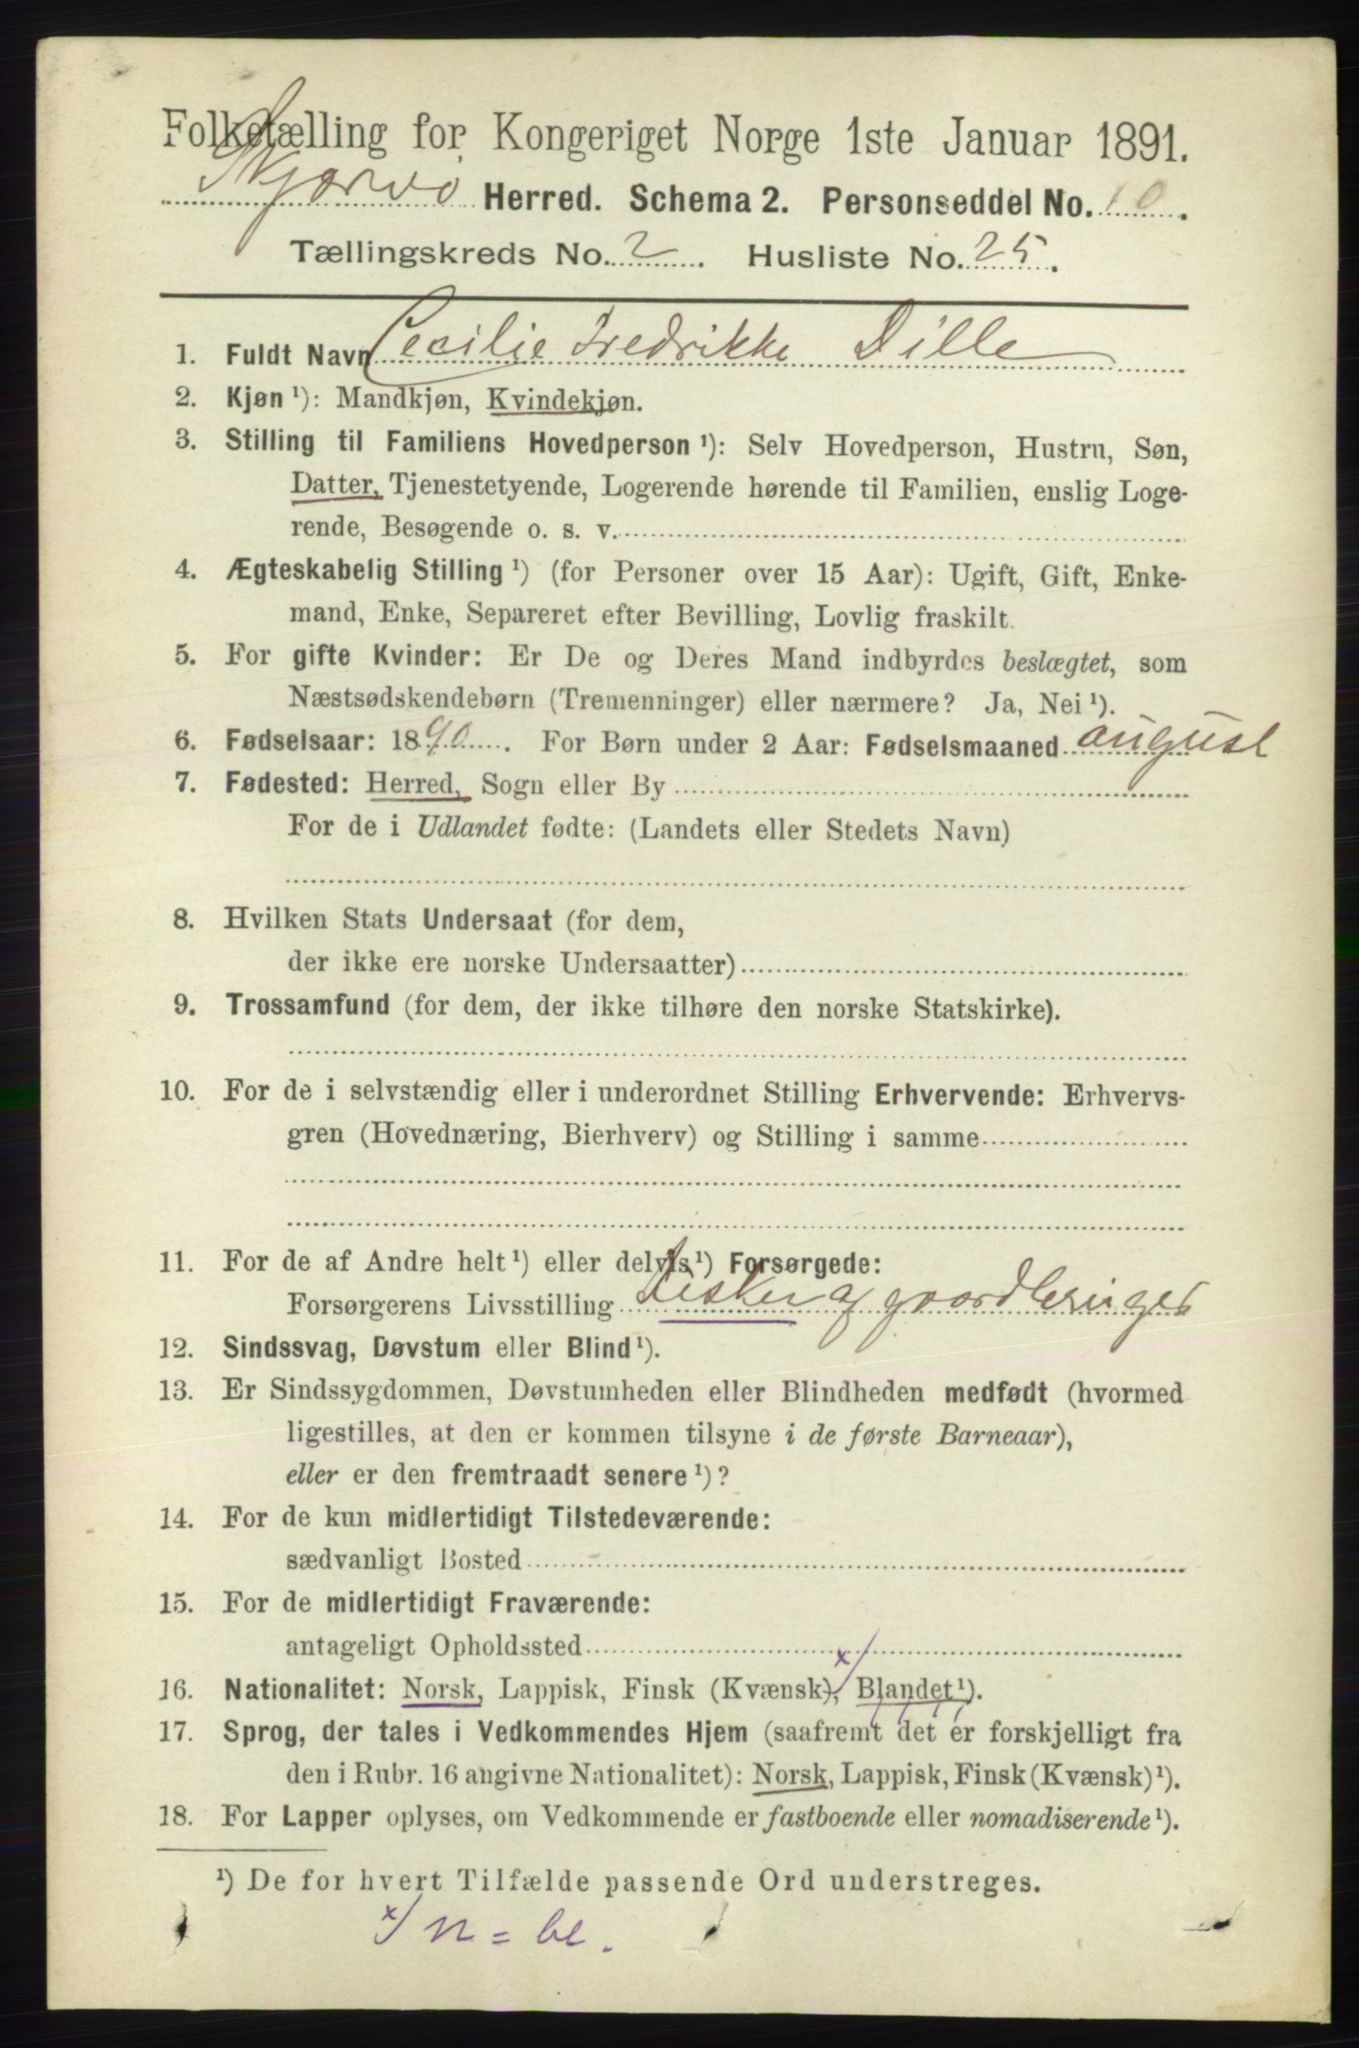 Folketælling for Kongeriget Norge 1ste Januar 1891.
Skjervø Herred. Schema 2. Personseddel No. 10.
Tællingskreds No. 2. Husliste No. 25.
1. Fuldt Navn Cecilie Fredrikke Dille
2. Kjøn ¹): Mandkjøn, Kvindekjøn.
3. Stilling til Familiens Hovedperson ¹): Selv Hovedperson, Hustru, Søn,
Datter, Tjenestetyende, Logerende hørende til Familien, enslig Loge-
rende, Besøgende o. s. v.
4. Ægteskabelig Stilling ¹) (for Personer over 15 Aar): Ugift, Gift, Enke-
mand, Enke, Separeret efter Bevilling, Lovlig fraskilt.
5. For gifte Kvinder: Er De og Deres Mand indbyrdes beslægtet, som
Næstsødskendebørn (Tremenninger) eller nærmere? Ja, Nei ¹).
6. Fødselsaar: 1890. For Børn under 2 Aar: Fødselsmaaned august
7. Fødested: Herred, Sogn eller By
For de i Udlandet fødte: (Landets eller Stedets Navn)
8. Hvilken Stats Undersaat (for dem,
der ikke ere norske Undersaatter)
9. Trossamfund (for dem, der ikke tilhøre den norske Statskirke).
10. For de i selvstændig eller i underordnet Stilling Erhvervende: Erhvervs-
gren (Hovednæring, Bierhverv) og Stilling i samme
11. For de af Andre helt ¹) eller delvis ¹) Forsørgede:
Forsørgerens Livsstilling Fisker og gaardbruger
12. Sindssvag, Døvstum eller Blind ¹).
13. Er Sindssygdommen, Døvstumheden eller Blindheden medfødt (hvormed
ligestilles, at den er kommen tilsyne i de første Barneaar),
eller er den fremtraadt senere ¹)?
14. For de kun midlertidigt Tilstedeværende:
sædvanligt Bosted
15. For de midlertidigt Fraværende:
antageligt Opholdssted
16. Nationalitet: Norsk, Lappisk, Finsk (Kvænsk), x/ Blandet ¹).
17. Sprog, der tales i Vedkommendes Hjem (saafremt det er forskjelligt fra
den i Rubr. 16 angivne Nationalitet): Norsk, Lappisk, Finsk (Kvænsk) ¹).
18. For Lapper oplyses, om Vedkommende er fastboende eller nomadiserende ¹).
¹) De for hvert Tilfælde passende Ord understreges.
x/ n = bl.